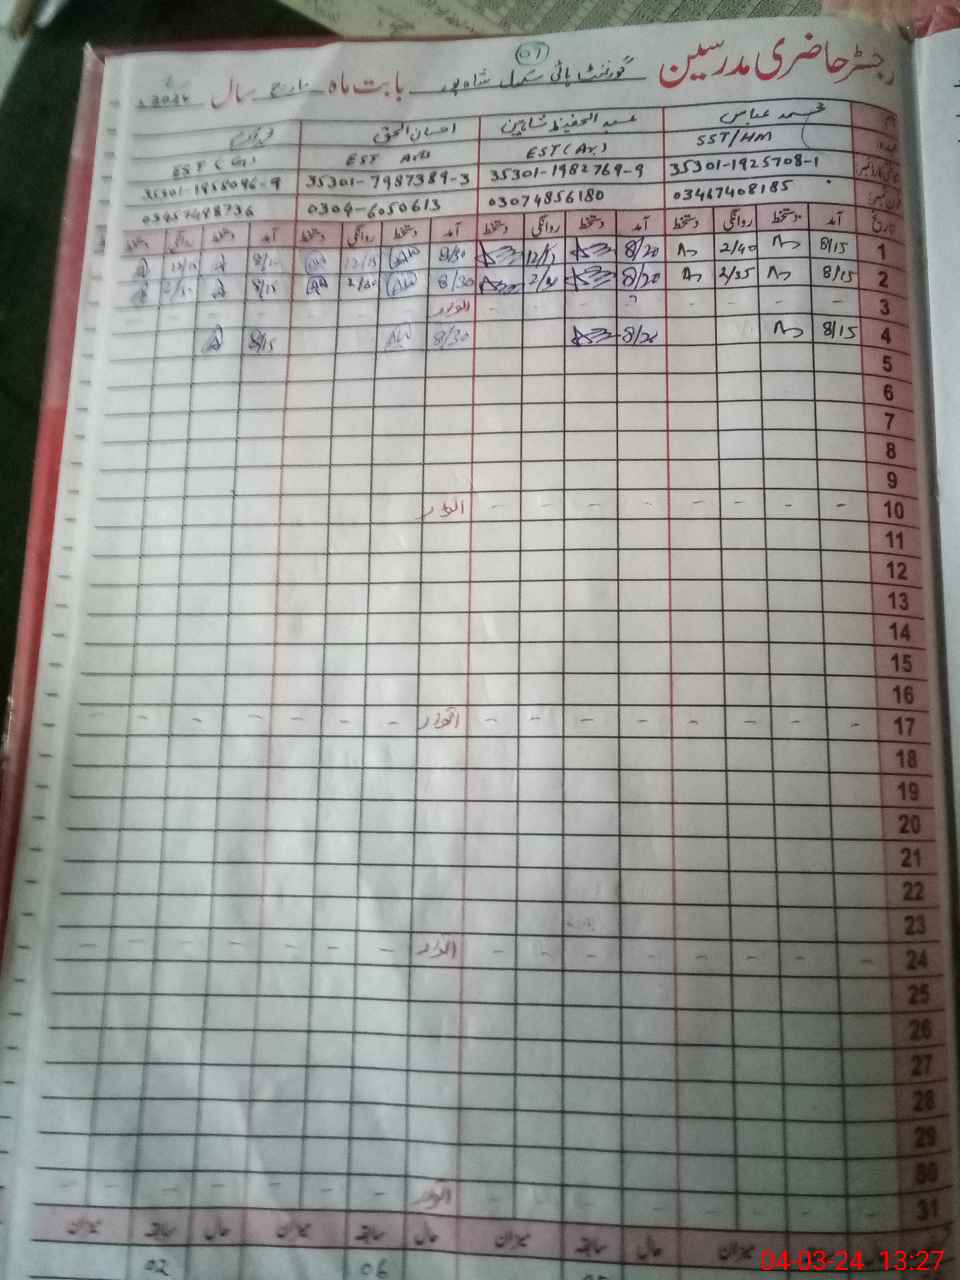 (01)
رجسٹر حاضری مدرسین گورنمنٹ ہائی سکول شاہ پور بابت ماہ مارچ سال 2024ء
محمد عباس عبد الحفیظ شاہین احسان الحق
SST/HM EST (Ar.) EST Arts EST (G)
35301-1925708-1 35301-1982769-9 35301-7987389-3
03467408185 03074856180 0304-6050613
تاریخ آمد دستخط روانگی دستخط آمد دستخط روانگی دستخط آمد دستخط روانگی دستخط آمد دستخط روانگی دستخط
1 8/15 2/40 8/20 8/30 12/15
2 8/15 2/35 8/20 8/30 8/15
3 اتوار
4 8/15 8/20 8/30 8/15
5
6
7
8
9
10 - - - - - - - - اتوار
11
12
13
14
15
16
17 - - - - - - - - اتوار - - - - - - -
18
19
20
21
22
23
24 - - - - - - - - اتوار - - - - - - -
25
26
27
28
29
30
31 اتوار
میزان حال سابقہ میزان حال سابقہ میزان حال سابقہ میزان
06 02
04-03-24 13:27